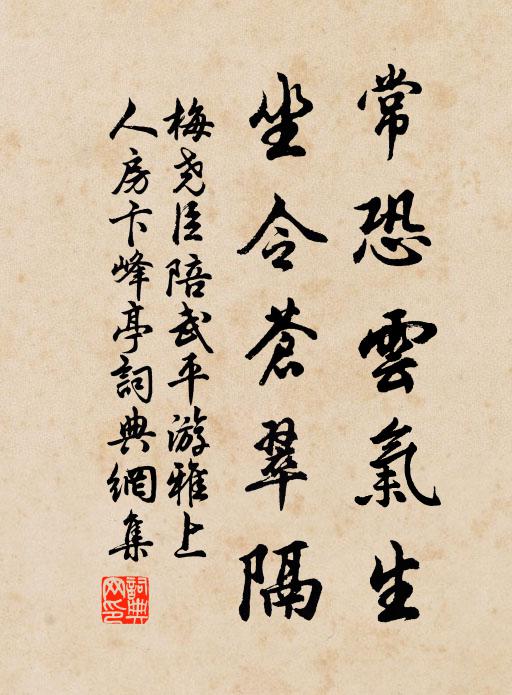 常恐雲氣生
坐令蒼翠隔
梅堯臣陪武平游雅上
人房卞峰亭詞典網集
詞典網印